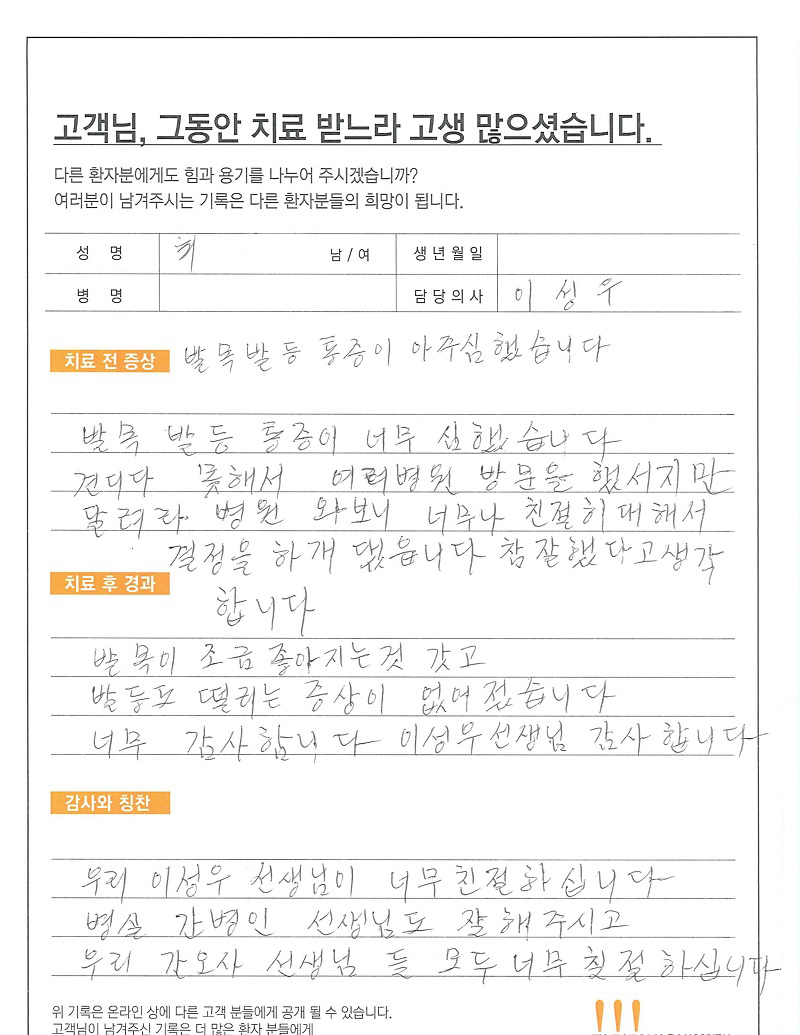 고객님, 그동안 치료 받느라 고생 많으셨습니다.
다른 환자분에게도 힘과 용기를 나누어 주시겠습니까?
여러분이 남겨주시는 기록은 다른 환자분들의 희망이 됩니다.
성 명 최 남 / 여 생년월일
병 명 담당의사 이성우
치료 전 증상 발목발등 통증이 아주심했습니다
발목 발등 통증이 너무 심했습니다
견디다 못해서 여러병원 방문을 했서지만
달려라 병원 와보니 너무나 친절히대해서
결정을 하개 됐읍니다 참잘했다고생각
치료 후 경과
합니다
발목이 조금 좋아지는것 갓고
발등도 떨리는 증상이 없어젔습니다
너무 감사합니다 이성우선생님 감사합니다
감사와 칭찬
우리 이성우 선생님이 너무친절하십니다
병실 간병인 선생님도 잘해주시고
우리 간오사 선생님 들 모두너무 칮절하십니다
위 기록은 온라인 상에 다른 고객 분들에게 공개 될 수 있습니다.
고객님이 남겨주신 기록은 더 많은 환자 분들에게